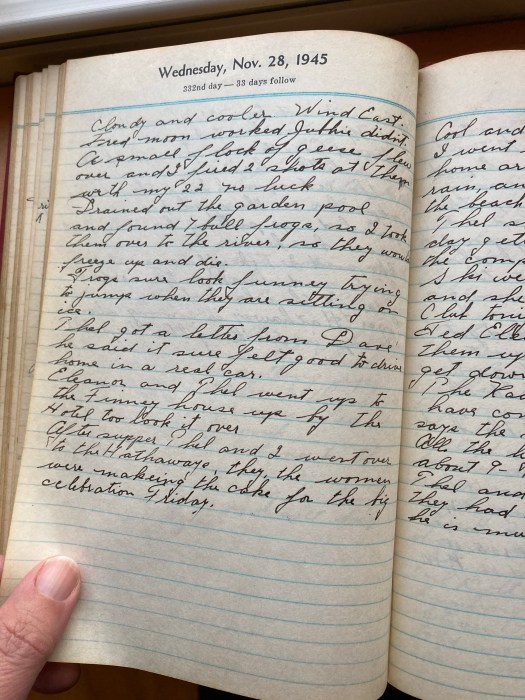 Wednesday, Nov. 28, 1945
332nd day — 33 days follow
Cloudy and cooler Wind East.
Fred moon worked Jubbie didnt.
A small flock of geese flew
over and I fired 2 shots at them
with my 22 no luck
Drained out the garden pool
and found 7 bull frogs, so I took
them over to the river, so they would
freeze up and die.
Frogs sure look funney trying
to jump when they are sitting on
ice.
Thel got a letter from Dave
he said it sure felt good to drive
home in a real car.
Eleanor and Thel went up to
the Finney house up by the
Hotel too look it over
After supper Thel and I went over
to the Hathaways, they, the women
were makeing the cake for the big
celebration Friday.
Cool and
I went
home ar
rain, an
the beach
Thel s
day get
the comp
S his we
and she
Club toni
Ted Elle
them up
get down
The Kac
have co
says the
All the l
about 9
Thel and
they had
he is mu